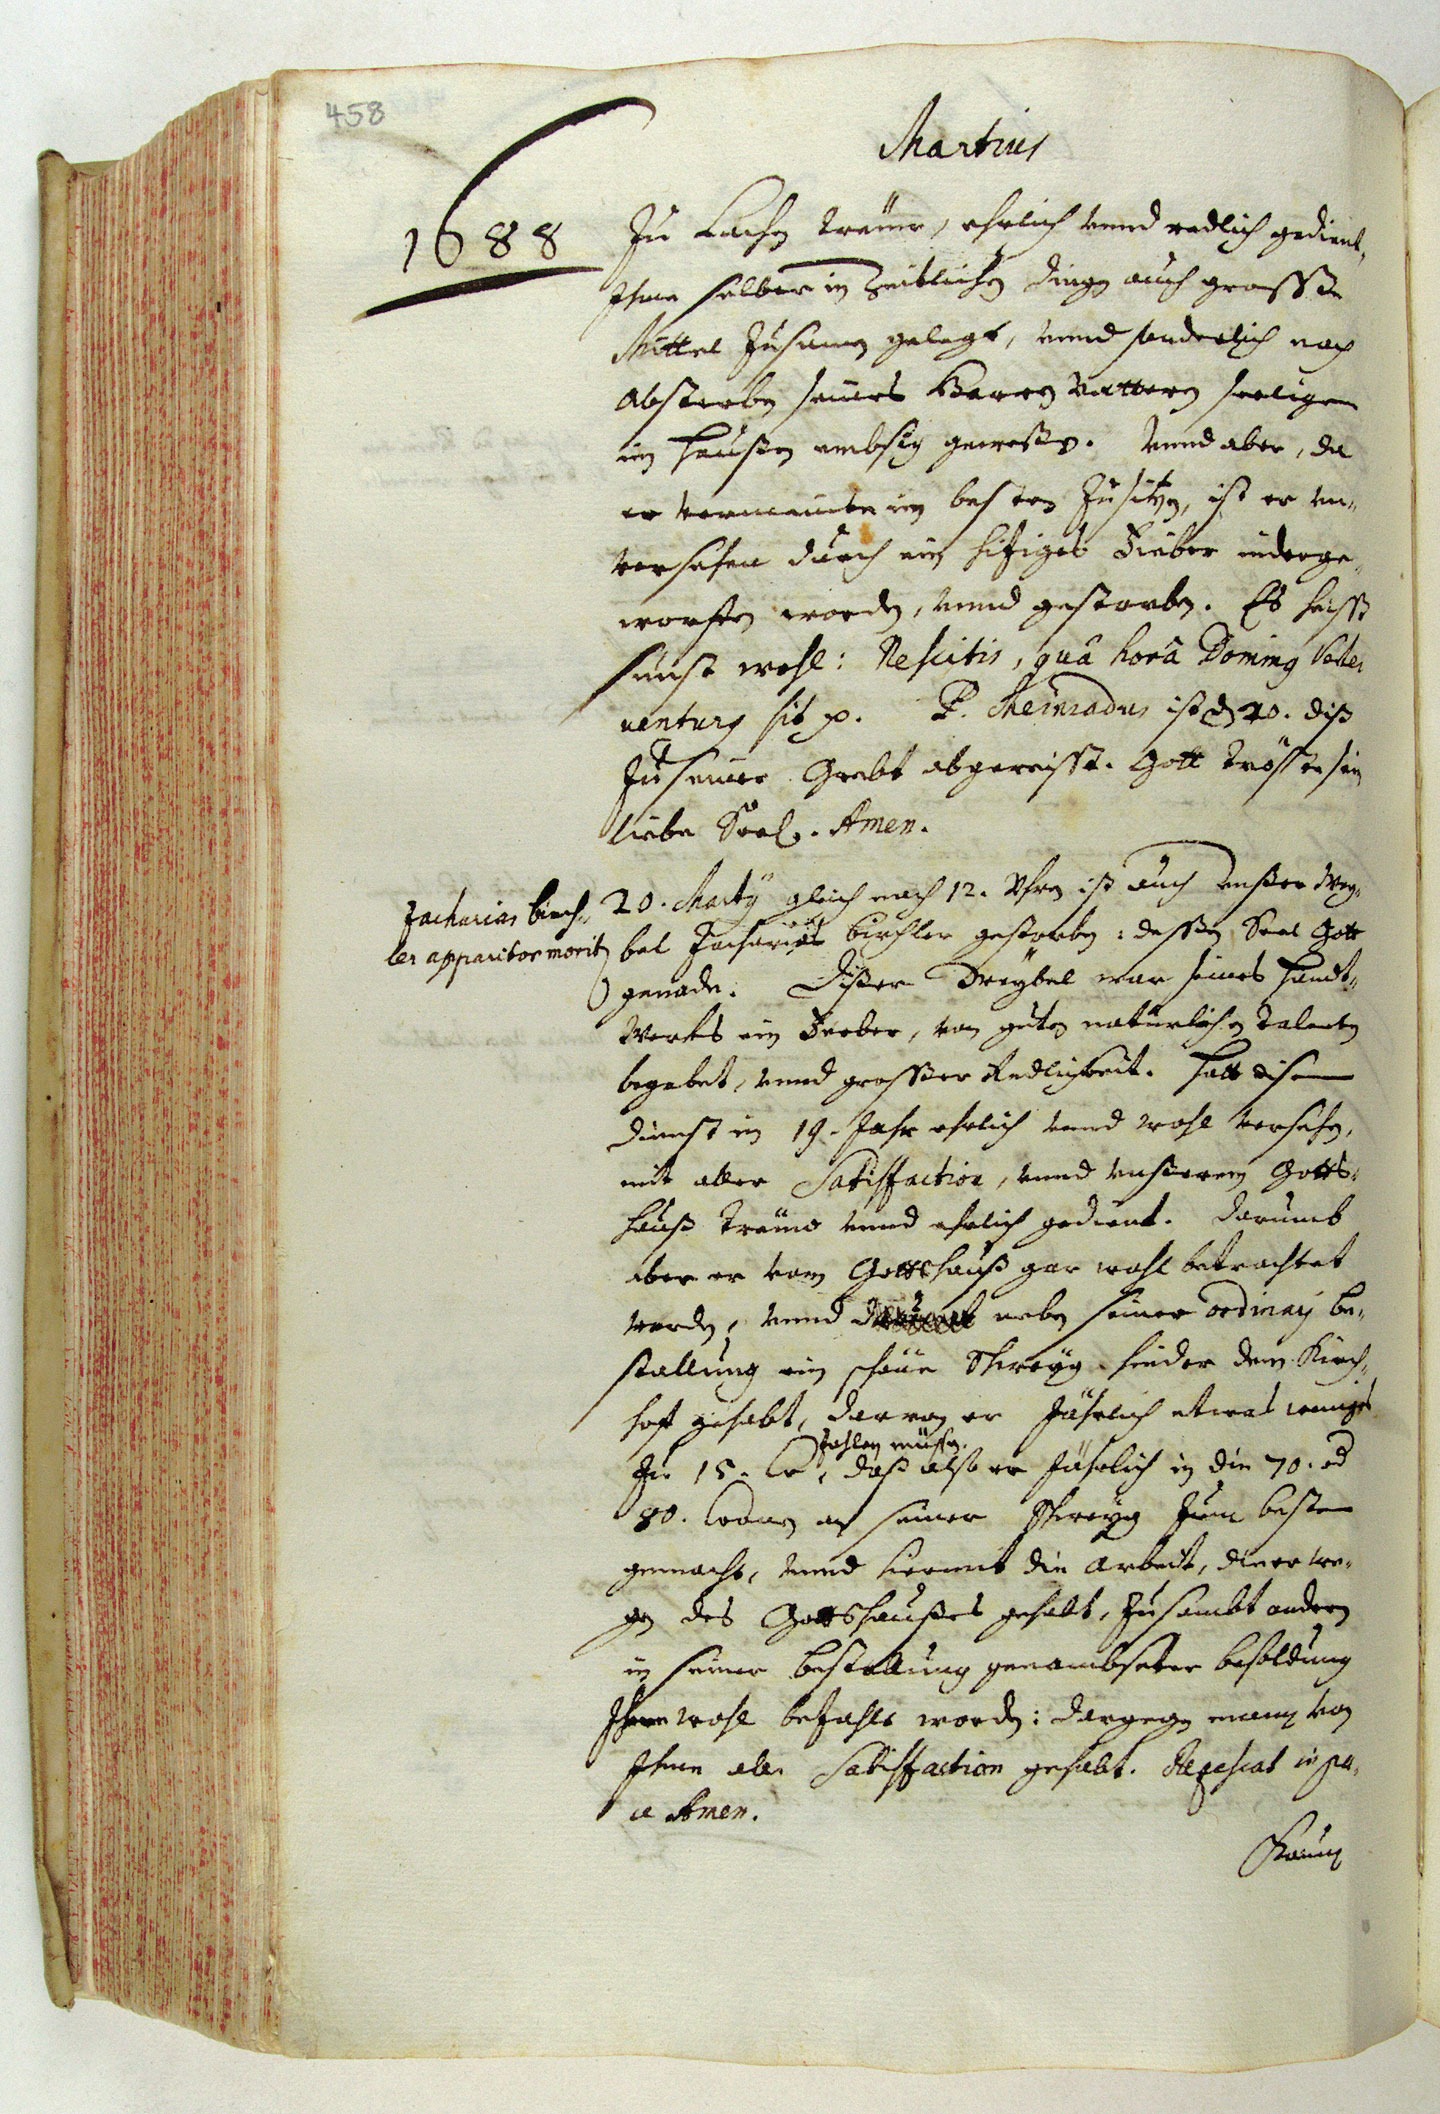 458
Martius
1688
Zu Lachen treüw, ehrlich vnnd redlich gedient,
Ihme selber in zeitlichen dingen auch grosse
Mittel zusamen gelegt, vnnd sonderlich nach
absterben seines Herren Vatteren seeligen
in hausen embsig gewessen. Vnnd aber, da
er vermeinte im besten zu sitzen, ist er vn-
versehen durch ein hitziges Fieber niderge-
worffen worden, vnnd gestorben. Es heisst
sunst wohl: Nescitis, quâ horâ Dominus vester
venturus sit p. P. Meinradus ist den 20. diß
zu seiner Grebt abgereisst. Gott tröste sein
liebe Seel. Amen.
Zacharias birch-
ler apparitor moritur
20. Martÿ gleich nach 12. Vhren ist auch vnßer Wey-
bel Zacharias birchler gestorben: dessen Seel Gott
genade. Dißer Weÿbel war seines handt-
wercks ein Ferber, von guten natürlichen talenten
begabet, vnnd grosser Redligkeit. Hatt disen
dienst in 19. Jahr ehrlich vnnd wohl versehen,
mit aller Satisfaction, vnnd vnßerem Gotts-
hauß treüw vnnd ehrlich gedient. Darumb
aber er vom Gottshauß gar wohl betrachtet
worden, vnnd neben seiner ordinarj be-
stallung ein schöne Schweÿg hinder dem Kirch-
hoff gehabt, darvon er Jährlich etwas weniges
zahlen müssen.
Zu 15. Cr, daß also er Jährlich in die 70. od
80. Cronen an seiner Schweÿg zum besten
gemacht, vnnd hiemit die arbeit, die er we-
gen des Gottshaußes gehabt, zusambt anderen
in seiner bestallung genambseter besoldung
Ihme wohl bezahlt worden: dargegen man von
Ihme alle Satisfaction gehabt. Requiescat in pa-
ce Amen.